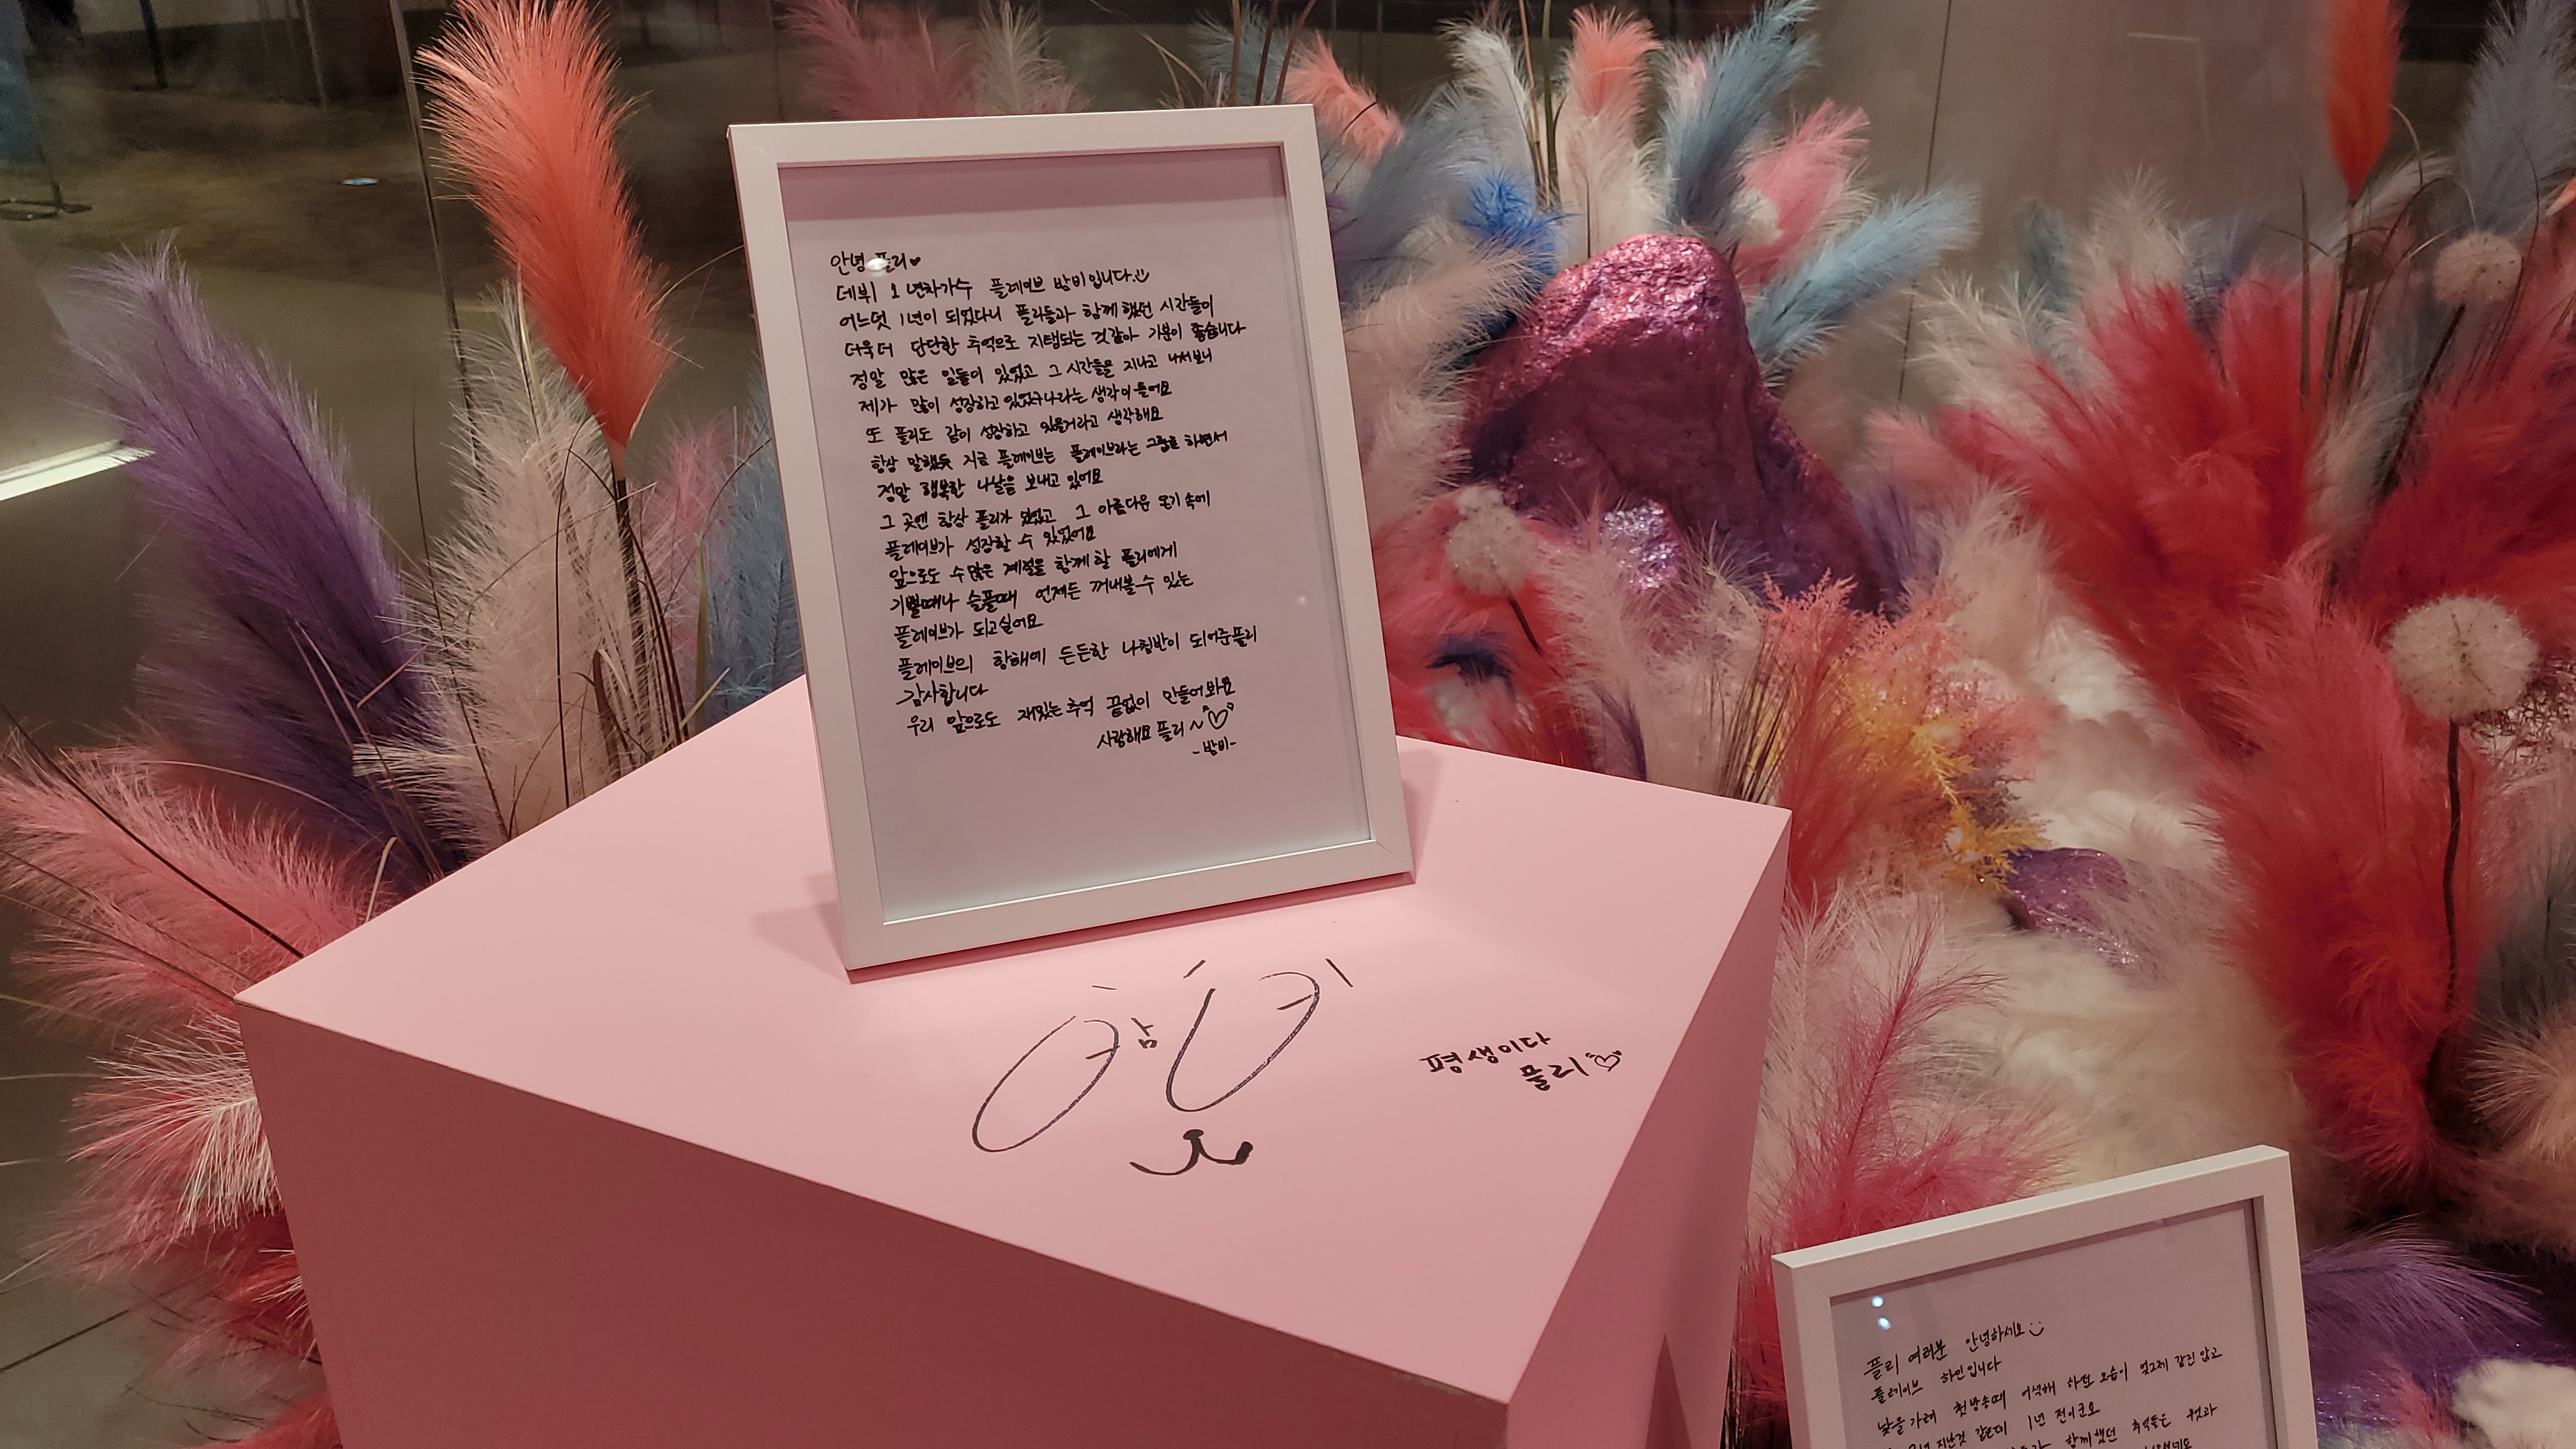 안녕 플리♥
데뷔 1년차가수 플레이브 밤비입니다.
어느덧 1년이 되었다니 플리들과 함께 했던 시간들이
더욱더 단단한 추억으로 지탱되는 것같아 기분이 좋습니다
정말 많은 일들이 있었고 그 시간들을 지나고 나서보니
제가 많이 성장하고 있었구나라는 생각이 들어요
또 플리도 같이 성장하고 있을거라고 생각해요
항상 말했듯 지금 플레이브는 플레이브라는 그룹을 하면서
정말 행복한 나날을 보내고 있어요
그 곳엔 항상 플리가 있었고 그 아름다운 온기 속에
플레이브가 성장할 수 있었어요
앞으로도 수많은 계절을 함께 할 플리에게
기쁠때나 슬플때 언제든 꺼내볼 수 있는
플레이브가 되고싶어요
플레이브의 항해에 든든한 나침반이 되어준플리
감사합니다
우리 앞으로도 재밌는 추억 끝없이 만들어 봐요
사랑해요 플리~♡
-밤비-
평생이다
플리♡
플리 여러분 안녕하세요
플레이브 하민입니다
낯을가려 첫방송때 어색해 하던 모습이 엊그제 같진 않고
지난것 같은데 1년 전이군요
함께했던 추억들은